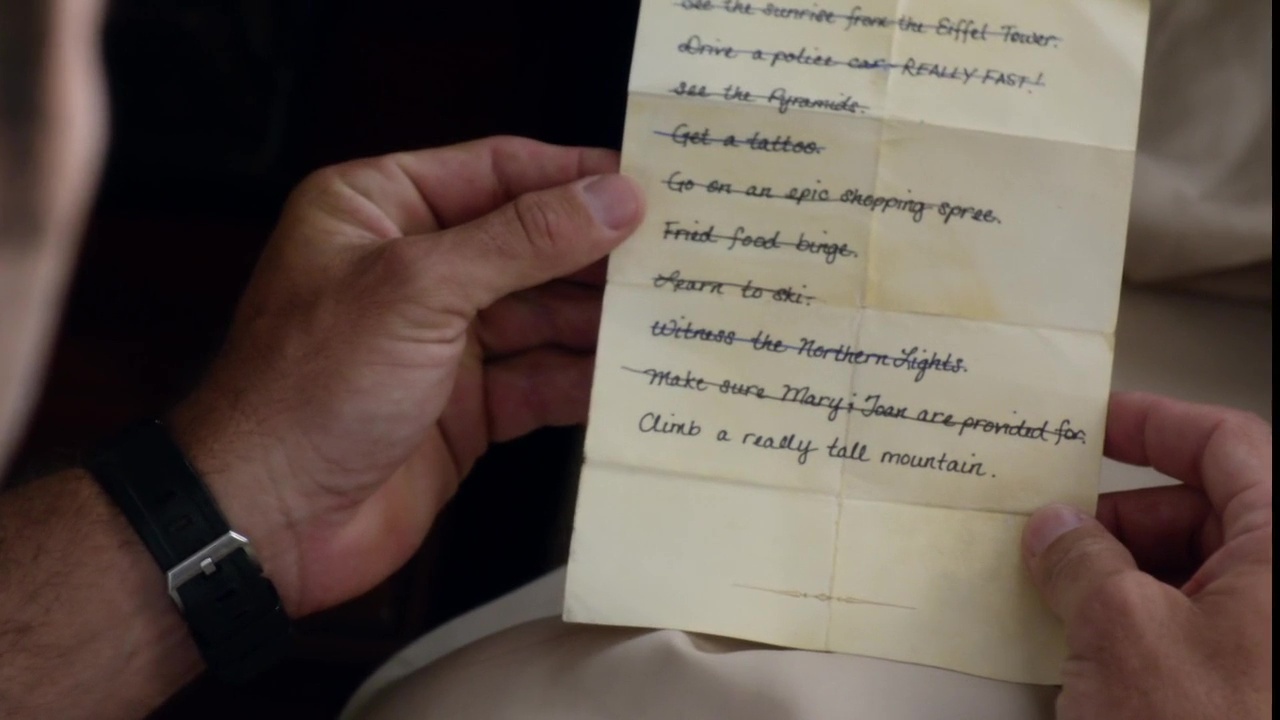 See the sunrise from the Eiffel Tower.
Drive a police car REALLY FAST!
See the Pyramids.
Get a tattoo.
Go on an epic shopping spree.
Fried food binge.
Learn to ski.
Witness the Northern Lights.
Make sure Mary & Joan are provided for.
Climb a really tall mountain.